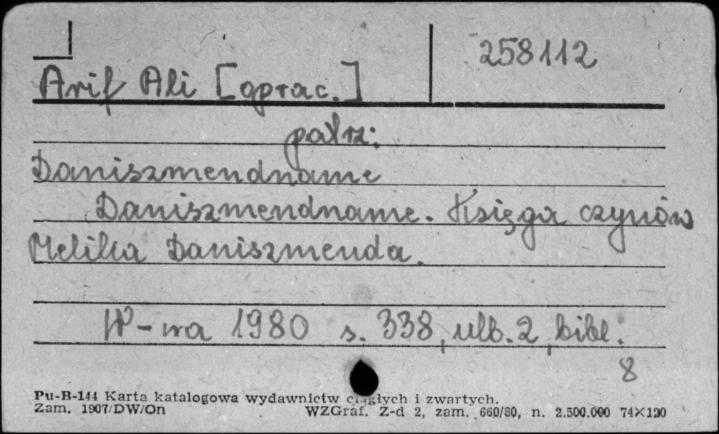 258112
Arif Ali [oprac.]
patrz:
Daniszmendname
Daniszmendname. Księga czynów
Melika Daniszmenda.
W-wa 1980 s. 338, nlb. 2, bibl.
8
Pu-B-144 Karta katalogowa wydawnictw ciągłych i zwartych.
Zam. 1907/DW/On WZGraf. Z-d 2, zam. 660/80, n. 2.500.000 74×120